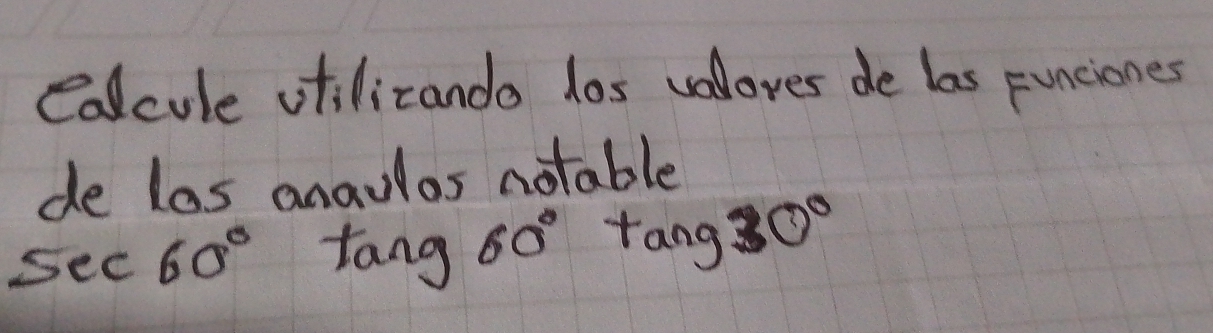 Calcule utilizando los valores de las Funciones
de los anaulos notable
sec 60° tang 60° tang 30°